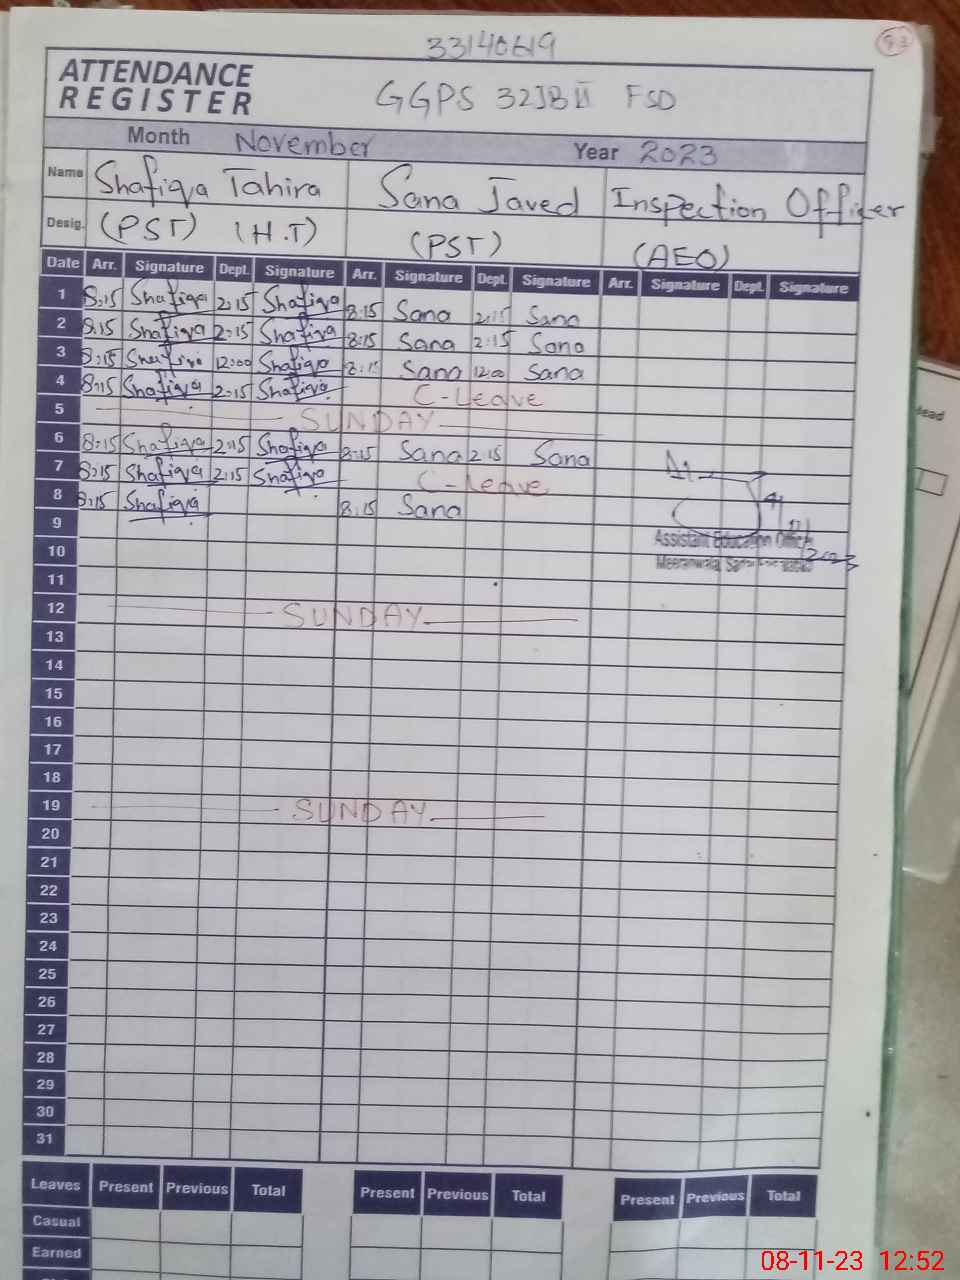 33140619
93
ATTENDANCE
REGISTER
GGPS 32JB II FSD
Month November Year 2023
Name Shafiqa Tahira Sana Javed Inspection Officer
Desig. (PST) (H.T) (PST) (AEO)
Date Arr. Signature Dept. Signature Arr. Signature Dept. Signature Arr. Signature Dept. Signature
1 8:15 Shafiqa 2:15 Shafiqa 8:15 Sana 2:15 Sana
2 8:15 Shafiqa 2:15 Shafiqa 8:15 Sana 2:15 Sana
3 8:15 Shafiqa 12:00 Shafiqa 8:15 Sana 12:00 Sana
4 8:15 Shafiqa 2:15 Shafiqa C-Leave
5 SUNDAY
6 8:15 Shafiqa 2:15 Shafiqa 8:15 Sana 2:15 Sana
7 8:15 Shafiqa 2:15 Shafiqa C-Leave
8 8:15 Shafiqa 8:15 Sana
9
Assistant Education Officer
10
11
12 SUNDAY
13
14
15
16
17
18
19 SUNDAY
20
21
22
23
24
25
26
27
28
29
30
31
Leaves Present Previous Total Present Previous Total Present Previous Total
Casual
Earned
08-11-23 12:52